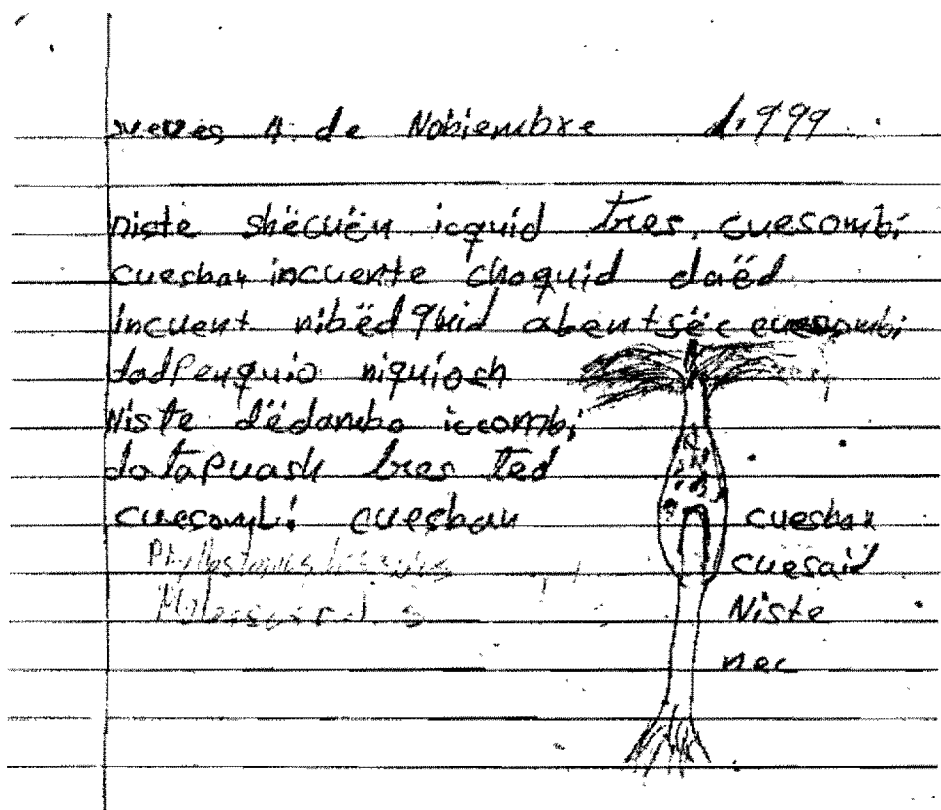 Jueves 4 de Nobiembre 1.999
Niste shëcuën icquid tres, cuesombi
cuesban incuente choquid daëd
incuent nibëd quid abentsëc cuesombi
dadpenquio niquiosh
Niste dëdambo iccombi
datapuash tres ted
cuesombi cuesban
Phyllostomus
cuesban
cuesaid
Niste
nec